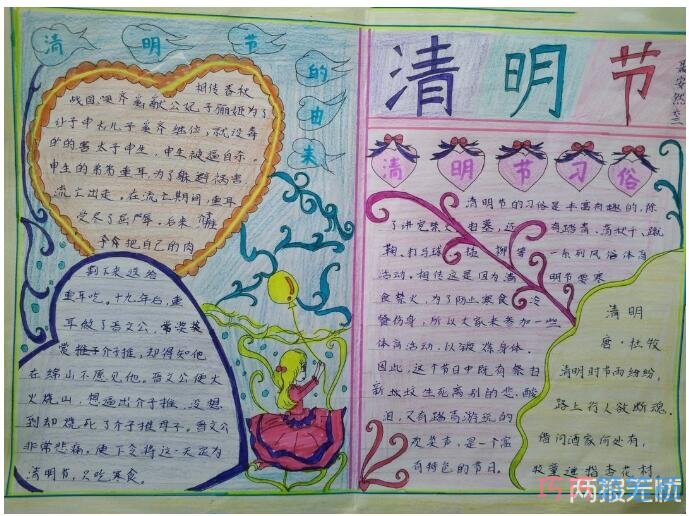 清明节的由来
相传春秋
战国,晋齐
献公妃子骊姬为了
让自己儿子奚齐继位,就设毒
计害太子申生,申生被逼自杀。
申生的弟弟重耳,为了躲避祸害,
流亡出走。在流亡期间,重耳
受尽了屈辱。后来
把自己的肉
割下来送给
重耳吃。十九年后,重
耳做了晋文公,
介子推,却得知他
在绵山不愿见他。晋文公便火
火烧山,想逼出介子推,没想
到却烧死了介子推母子。晋文公
非常悲痛,便下令将这一天定为
清明节,只吃寒食。
清明节
清明节习俗
清明节的习俗是丰富有趣的,除
了讲究禁火、扫墓,还有踏青、荡秋千、蹴
鞠、打马球、插柳等一系列风俗体育
活动。相传这是因为清明节要寒
食禁火,为了防止寒食冷
餐伤身,所以大家来参加一些
体育活动,以锻炼身体。
因此,这个节日中既有祭扫
新坟生死离别的悲酸
泪,又有踏青游玩的
欢笑声,是一个富
有特色的节日。
清明
唐·杜牧
清明时节雨纷纷,
路上行人欲断魂。
借问酒家何处有,
牧童遥指杏花村